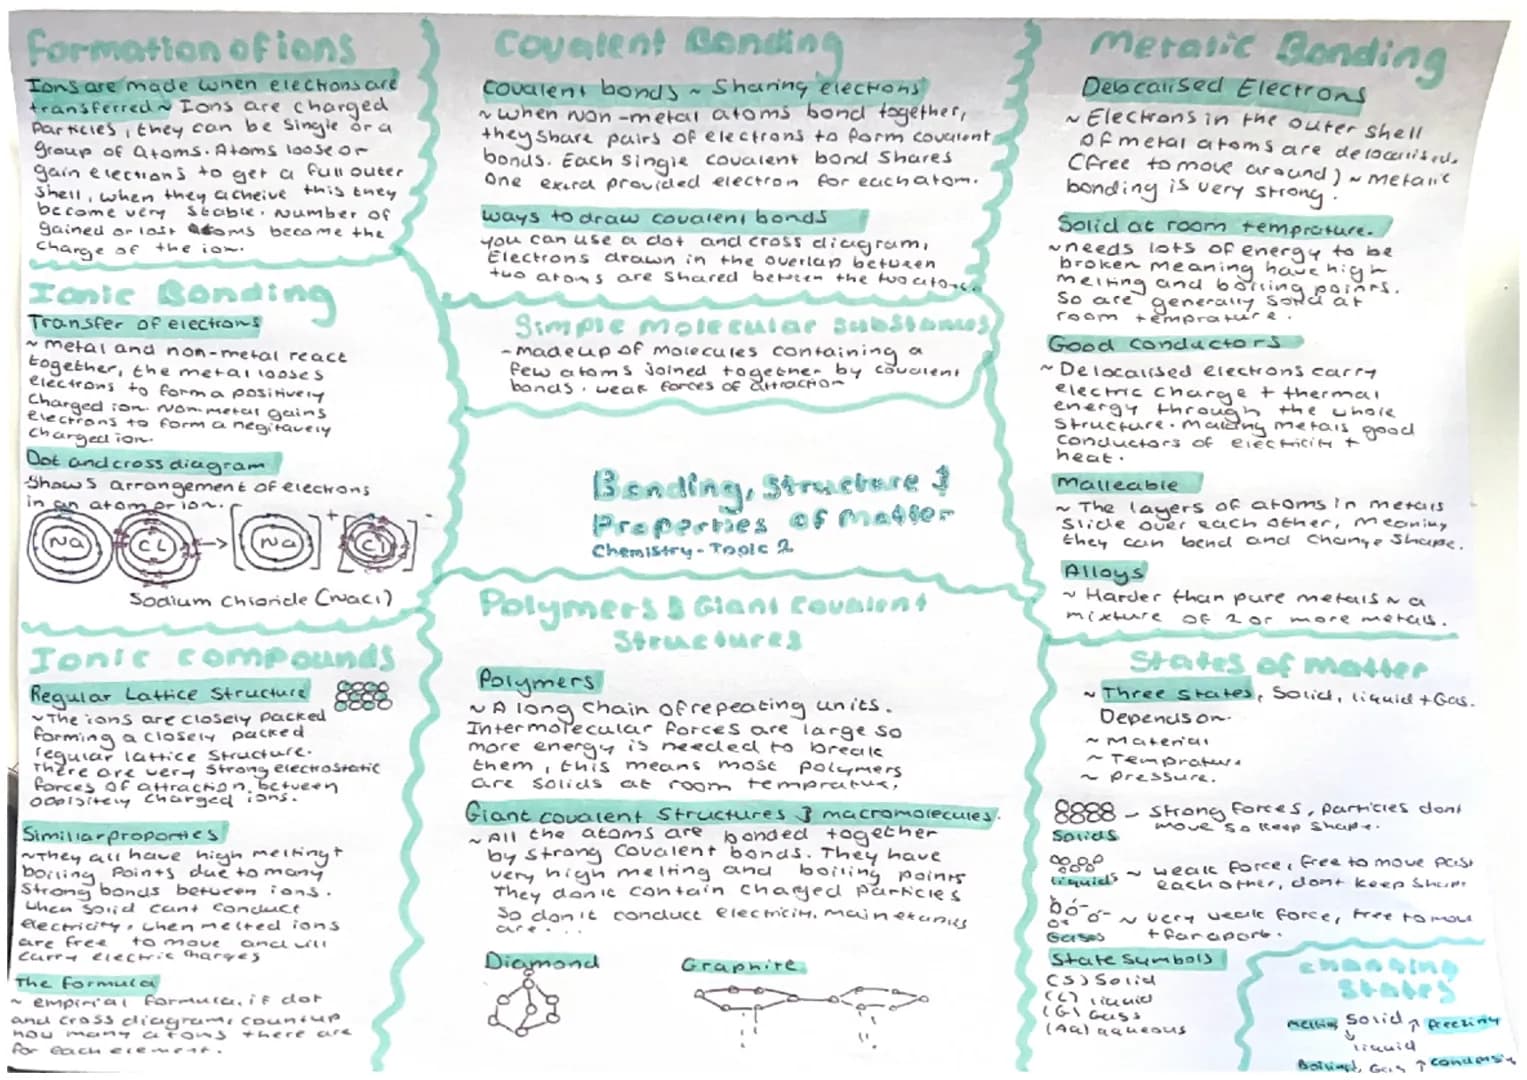 Formation of ions
Ions are made when electrons are
transferred ~ Ions are charged
Particles, they can be Single or a
group of Atoms. Atoms loose or
gain electrons to get a full outer
Shell, when they acheive this they
become very Stable. Number of
gained or lost atoms become the
Charge of the ion.
Ionic Bonding
Transfer of electrons
~ metal and non-metal react
together, the metal looses
electrons to form a positively
Charged ion. Nonmetal gains
electrons to form a negitavely
Charged ion.
Dot and cross diagram
Shows arrangement of electrons
in an atom or ion.
Na CL → [Na]+ [Cl]-
Sodium Chloride (NaCl)
Ionic compounds
Regular Lattice Structure
~The ions are closely packed
forming a closely packed
regular lattice structure.
There are very strong electrostatic
forces of attraction, between
oppisitely charged ions.
Similiar properties
~They all have high melting +
boiling Points due to many
Strong bonds between ions.
When Solid cant conduct
electricity, when melted ions
are free to move and will
carry electric charges
The formula
~ empirial formula, if dot
and cross diagram, count up
how many atoms there are
for each element.
Covalent Bonding
Covalent bonds ~ Sharing electrons
~ when non-metal atoms bond together,
they share pairs of electrons to form covalent
bonds. Each Single covalent bond Shares
One provided electron for each atom.
Ways to draw covalent bonds
you can use a dot and cross diagram,
Electrons drawn in the overlap between
two atoms are shared between the two atoms.
Simple molecular substances
-made up of molecules containing a
few atoms joined together by covalent
bonds. weak forces of attraction
Bonding, Structure &
Properties of matter
Chemistry - Topic 2
Polymers & Giant Covalent
Structures
Polymers
~ A long chain of repeating units.
Intermolecular forces are large so
more energy is needed to break
them, this means most polymers
are solids at room temprature.
Giant covalent Structures & macromolecules.
~ All the atoms are bonded together
by strong covalent bonds. They have
very high melting and boiling points
They don't contain charged particles
So don't conduct electricity.
are....
Diamond
Graphite
Metalic Bonding
Delocalised Electrons
~ Electrons in the outer shell
Of metal atoms are delocalised.
(free to move around) ~ metalic
bonding is very strong.
Solid at room temprature.
~needs lots of energy to be
broken meaning have high
melting and boiling points.
So are generally solid at
room temprature.
Good conductors
~ Delocalised electrons carry
electric charge + thermal
energy through the whole
structure. Making metals good
conductors of electricity +
heat.
Malleable
~ The layers of atoms in metals
slide over each other, meaning
they can bend and change shape.
Alloys
~ Harder than pure metals ~ a
mixture of 2 or more metals.
States of matter
~ Three states, Solid, liquid + Gas.
Depends on.
~ Material
~ Temprature
~ pressure.
Solids
- strong forces, particles dont
move so keep shape.
liquids
~ weak force, free to move past
each other, dont keep shape
Gases
~ very weak force, free to move
+ far apart.
State Symbols
(S) Solid
(L) liquid
(G) Gass
(Aq) aqueous
Changing
States
melting Solid ↑ freezing
↓ liquid
Boiling ↓ Gas ↑